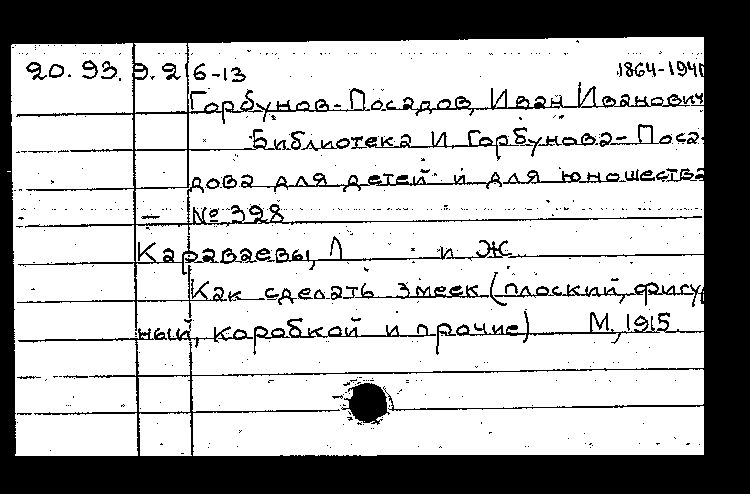 20. 93. 9. 2 6-13 1864-1940
Горбунов-Посадов, Иван Иванович
Библиотека И. Горбунова-Поса-
дова для детей и для юношества
— № 328
Караваевы, Л и Ж
Как сделать змеек (плоский, фигур
ный, коробкой и прочие) М., 1915.